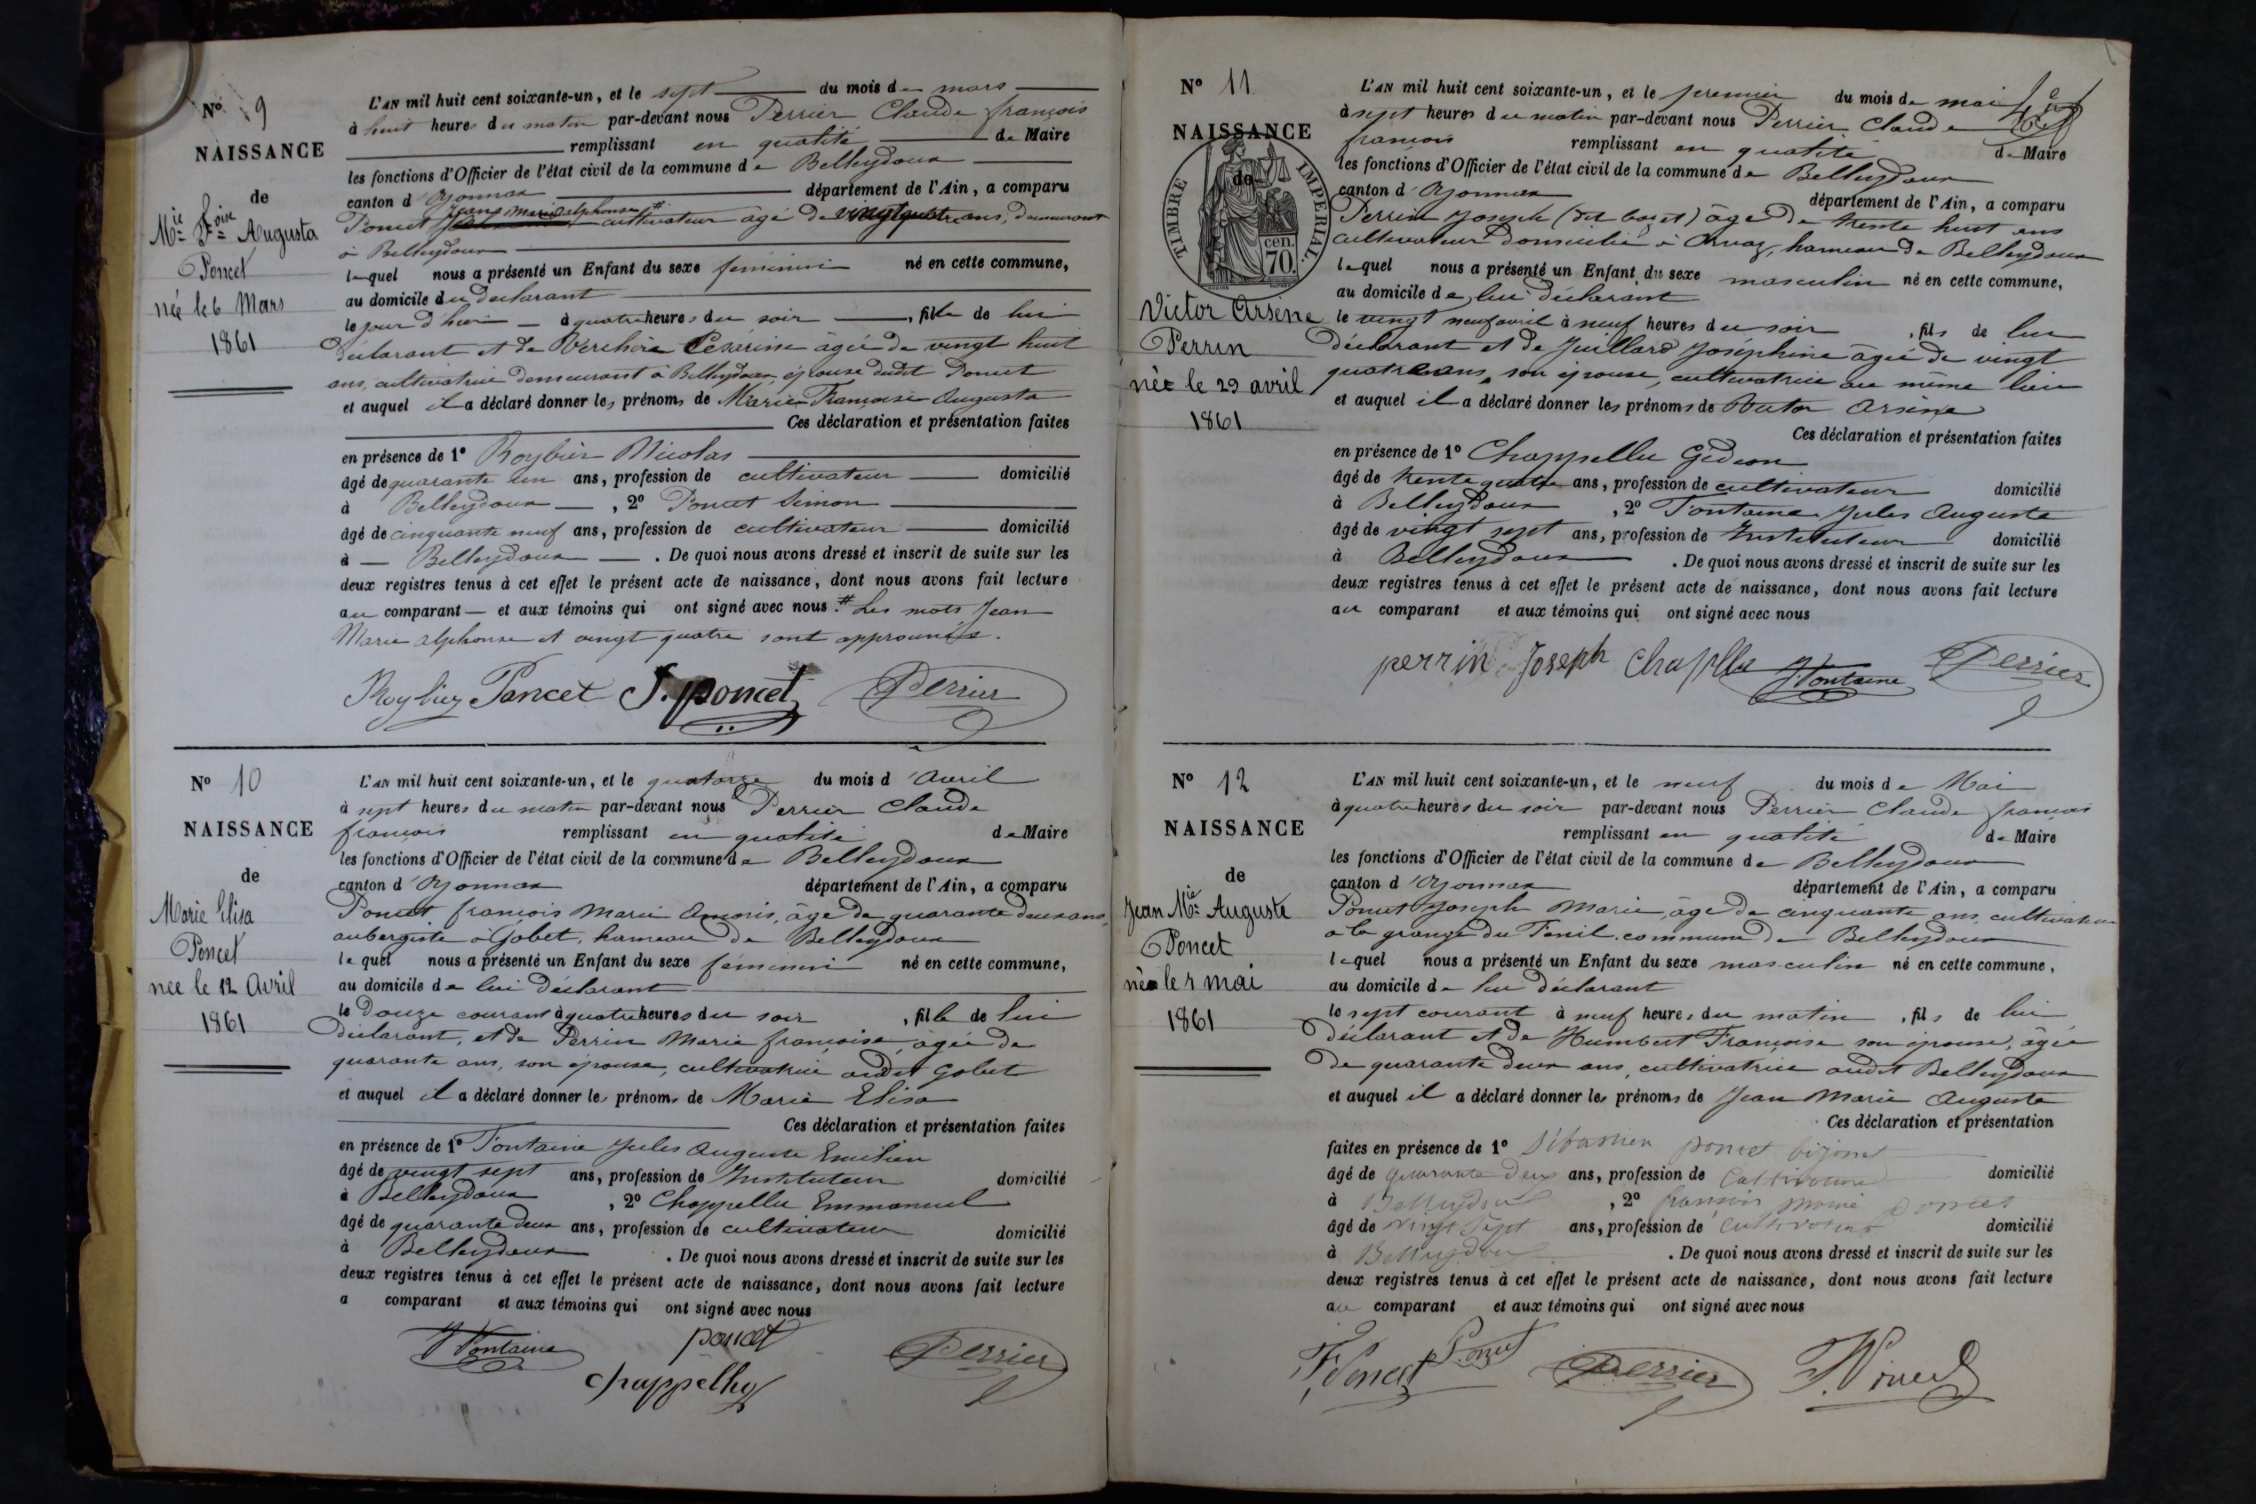 N° 9
NAISSANCE
de
Mie Foise Augusta
Poncet
née le 6 Mars
1861
L'AN mil huit cent soixante-un, et le sept du mois de mars
à huit heures du matin par-devant nous Perrier Claude françois
remplissant en qualité de Maire
les fonctions d'Officier de l'état civil de la commune de Belleydoux
canton d'Oyonnax département de l'Ain, a comparu
Jean Marie alphonse #
Poncet cultivateur âgé de vingt quatre ans, demeurant
à Belleydoux
lequel nous a présenté un Enfant du sexe féminin né en cette commune,
au domicile du déclarant
le jour d'hier à quatre heures du soir, fille de lui
déclarant et de Verchère Césarine âgée de vingt huit
ans, cultivatrice demeurant à Belleydoux, épouse dudit Poncet
et auquel il a déclaré donner les prénoms de Marie Françoise Augusta
Ces déclaration et présentation faites
en présence de 1° Roybier Nicolas
âgé de quarante un ans, profession de cultivateur domicilié
à Belleydoux, 2° Poncet Simon
âgé de cinquante neuf ans, profession de cultivateur domicilié
à Belleydoux. De quoi nous avons dressé et inscrit de suite sur les
deux registres tenus à cet effet le présent acte de naissance, dont nous avons fait lecture
au comparant et aux témoins qui ont signé avec nous. # Les mots Jean
Marie alphonse et vingt quatre sont approuvés.
Poncet S. poncet Perrier
N° 10
NAISSANCE
de
Marie Elisa
Poncet
née le 12 Avril
1861
L'AN mil huit cent soixante-un, et le quatorze du mois d'Avril
à sept heures du matin par-devant nous Perrier Claude
françois remplissant en qualité de Maire
les fonctions d'Officier de l'état civil de la commune de Belleydoux
canton d'Oyonnax département de l'Ain, a comparu
Poncet françois Marie Amoris, âgé de quarante deux ans,
aubergiste à Gobet, hameau de Belleydoux
lequel nous a présenté un Enfant du sexe féminin né en cette commune,
au domicile de lui déclarant
le douze courant à quatre heures du soir, fille de lui
déclarant, et de Perrin Marie françoise, âgée de
quarante ans, son épouse, cultivatrice audit Gobet
et auquel il a déclaré donner les prénoms de Marie Elisa
Ces déclaration et présentation faites
en présence de 1° Fontaine Jules Auguste Emilien
âgé de vingt sept ans, profession de Instituteur domicilié
à Belleydoux, 2° Chappellu Emmanuel
âgé de quarante deux ans, profession de cultivateur domicilié
à Belleydoux. De quoi nous avons dressé et inscrit de suite sur les
deux registres tenus à cet effet le présent acte de naissance, dont nous avons fait lecture
a comparant et aux témoins qui ont signé avec nous
J Fontaine poncet Perrier
N° 11
NAISSANCE
de
TIMBRE IMPERIAL
70. cen.
Victor Arsène
Perrin
né le 29 avril
1861
L'AN mil huit cent soixante-un, et le premier du mois de mai
à sept heures du matin par-devant nous Perrier Claude
françois remplissant en qualité de Maire
les fonctions d'Officier de l'état civil de la commune de Belleydoux
canton d'Oyonnax département de l'Ain, a comparu
Perrin Joseph (dit bozet) âgé de trente huit ans
cultivateur domicilié à Orvaz, hameau de Belleydoux
lequel nous a présenté un Enfant du sexe masculin né en cette commune,
au domicile de lui déclarant
le vingt neuf avril à neuf heures du soir, fils de lui
déclarant et de Juillard Joséphine âgée de vingt
quatre ans, son épouse, cultivatrice au même lieu
et auquel il a déclaré donner les prénoms de Victor Arsène
Ces déclaration et présentation faites
en présence de 1° Chappellu Gédeon
âgé de trente quatre ans, profession de cultivateur domicilié
à Belleydoux, 2° Fontaine Jules Auguste
âgé de vingt sept ans, profession de Instituteur domicilié
à Belleydoux. De quoi nous avons dressé et inscrit de suite sur les
deux registres tenus à cet effet le présent acte de naissance, dont nous avons fait lecture
au comparant et aux témoins qui ont signé avec nous
perrin Joseph J Fontaine Perrier
N° 12
NAISSANCE
de
Jean Mie Auguste
Poncet
né le 7 mai
1861
L'AN mil huit cent soixante-un, et le neuf du mois de Mai
à quatre heures du soir par-devant nous Perrier Claude françois
remplissant en qualité de Maire
les fonctions d'Officier de l'état civil de la commune de Belleydoux
canton d'Oyonnax département de l'Ain, a comparu
Poncet Joseph Marie, âgé de cinquante ans, cultivateur
à la grange du Fenil, commune de Belleydoux
lequel nous a présenté un Enfant du sexe masculin né en cette commune,
au domicile de lui déclarant
le sept courant à neuf heures du matin, fils de lui
déclarant et de Humbert Françoise son épouse, âgée
de quarante deux ans, cultivatrice audit Belleydoux
et auquel il a déclaré donner les prénoms de Jean Marie Auguste
Ces déclaration et présentation
faites en présence de 1° Sébastien poncet
âgé de quarante deux ans, profession de Cultivateur domicilié
à Belleydoux, 2° françois marie poncet
âgé de vingt sept ans, profession de cultivateur domicilié
à Belleydoux. De quoi nous avons dressé et inscrit de suite sur les
deux registres tenus à cet effet le présent acte de naissance, dont nous avons fait lecture
au comparant et aux témoins qui ont signé avec nous
F Poncet Poncet Perrier